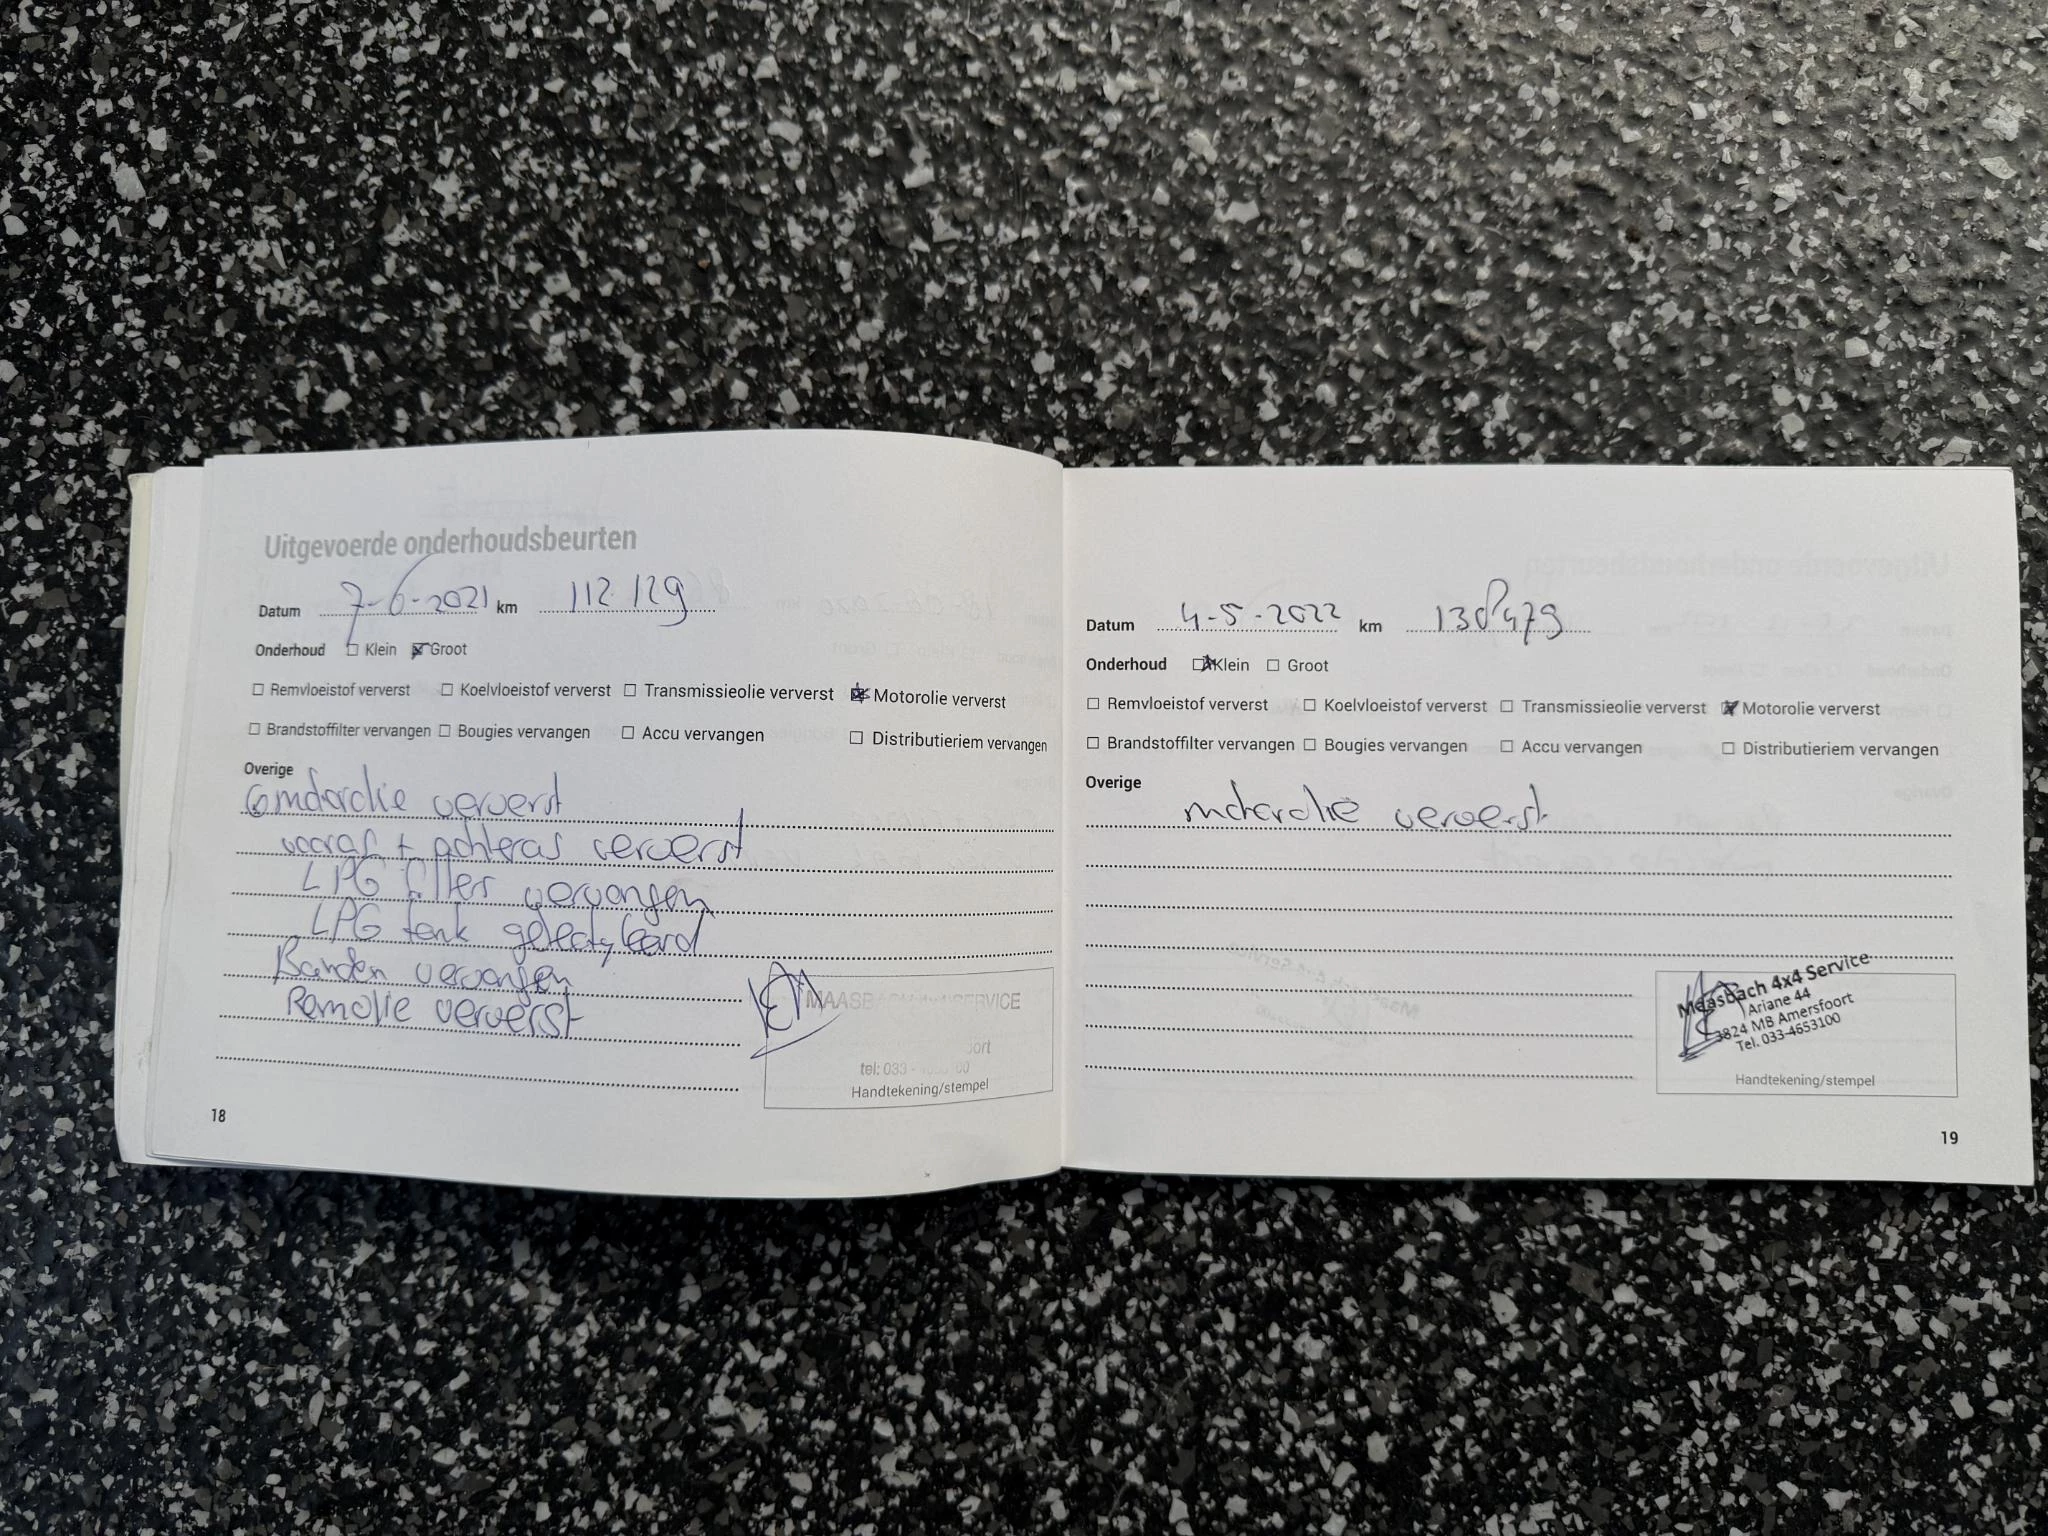 Uitgevoerde onderhoudsbeurten
Datum 7-6-2021 km 112.129
Onderhoud ☐ Klein ☒ Groot
☐ Remvloeistof ververst ☐ Koelvloeistof ververst ☐ Transmissieolie ververst ☒ Motorolie ververst
☐ Brandstoffilter vervangen ☐ Bougies vervangen ☐ Accu vervangen ☐ Distributieriem vervangen
Overige
motorolie ververst
vooras + achteras ververst
LPG filter vervangen
LPG tank
Banden vervangen
Remolie ververst
MAASB SERVICE
ort
tel: 033 - 00
Handtekening/stempel
18
Datum 4-5-2022 km 130479
Onderhoud ☒ Klein ☐ Groot
☐ Remvloeistof ververst ☐ Koelvloeistof ververst ☐ Transmissieolie ververst ☒ Motorolie ververst
☐ Brandstoffilter vervangen ☐ Bougies vervangen ☐ Accu vervangen ☐ Distributieriem vervangen
Overige
motorolie ververst
Maasbach 4x4 Service
Ariane 44
3824 MB Amersfoort
Tel. 033-4653100
Handtekening/stempel
19